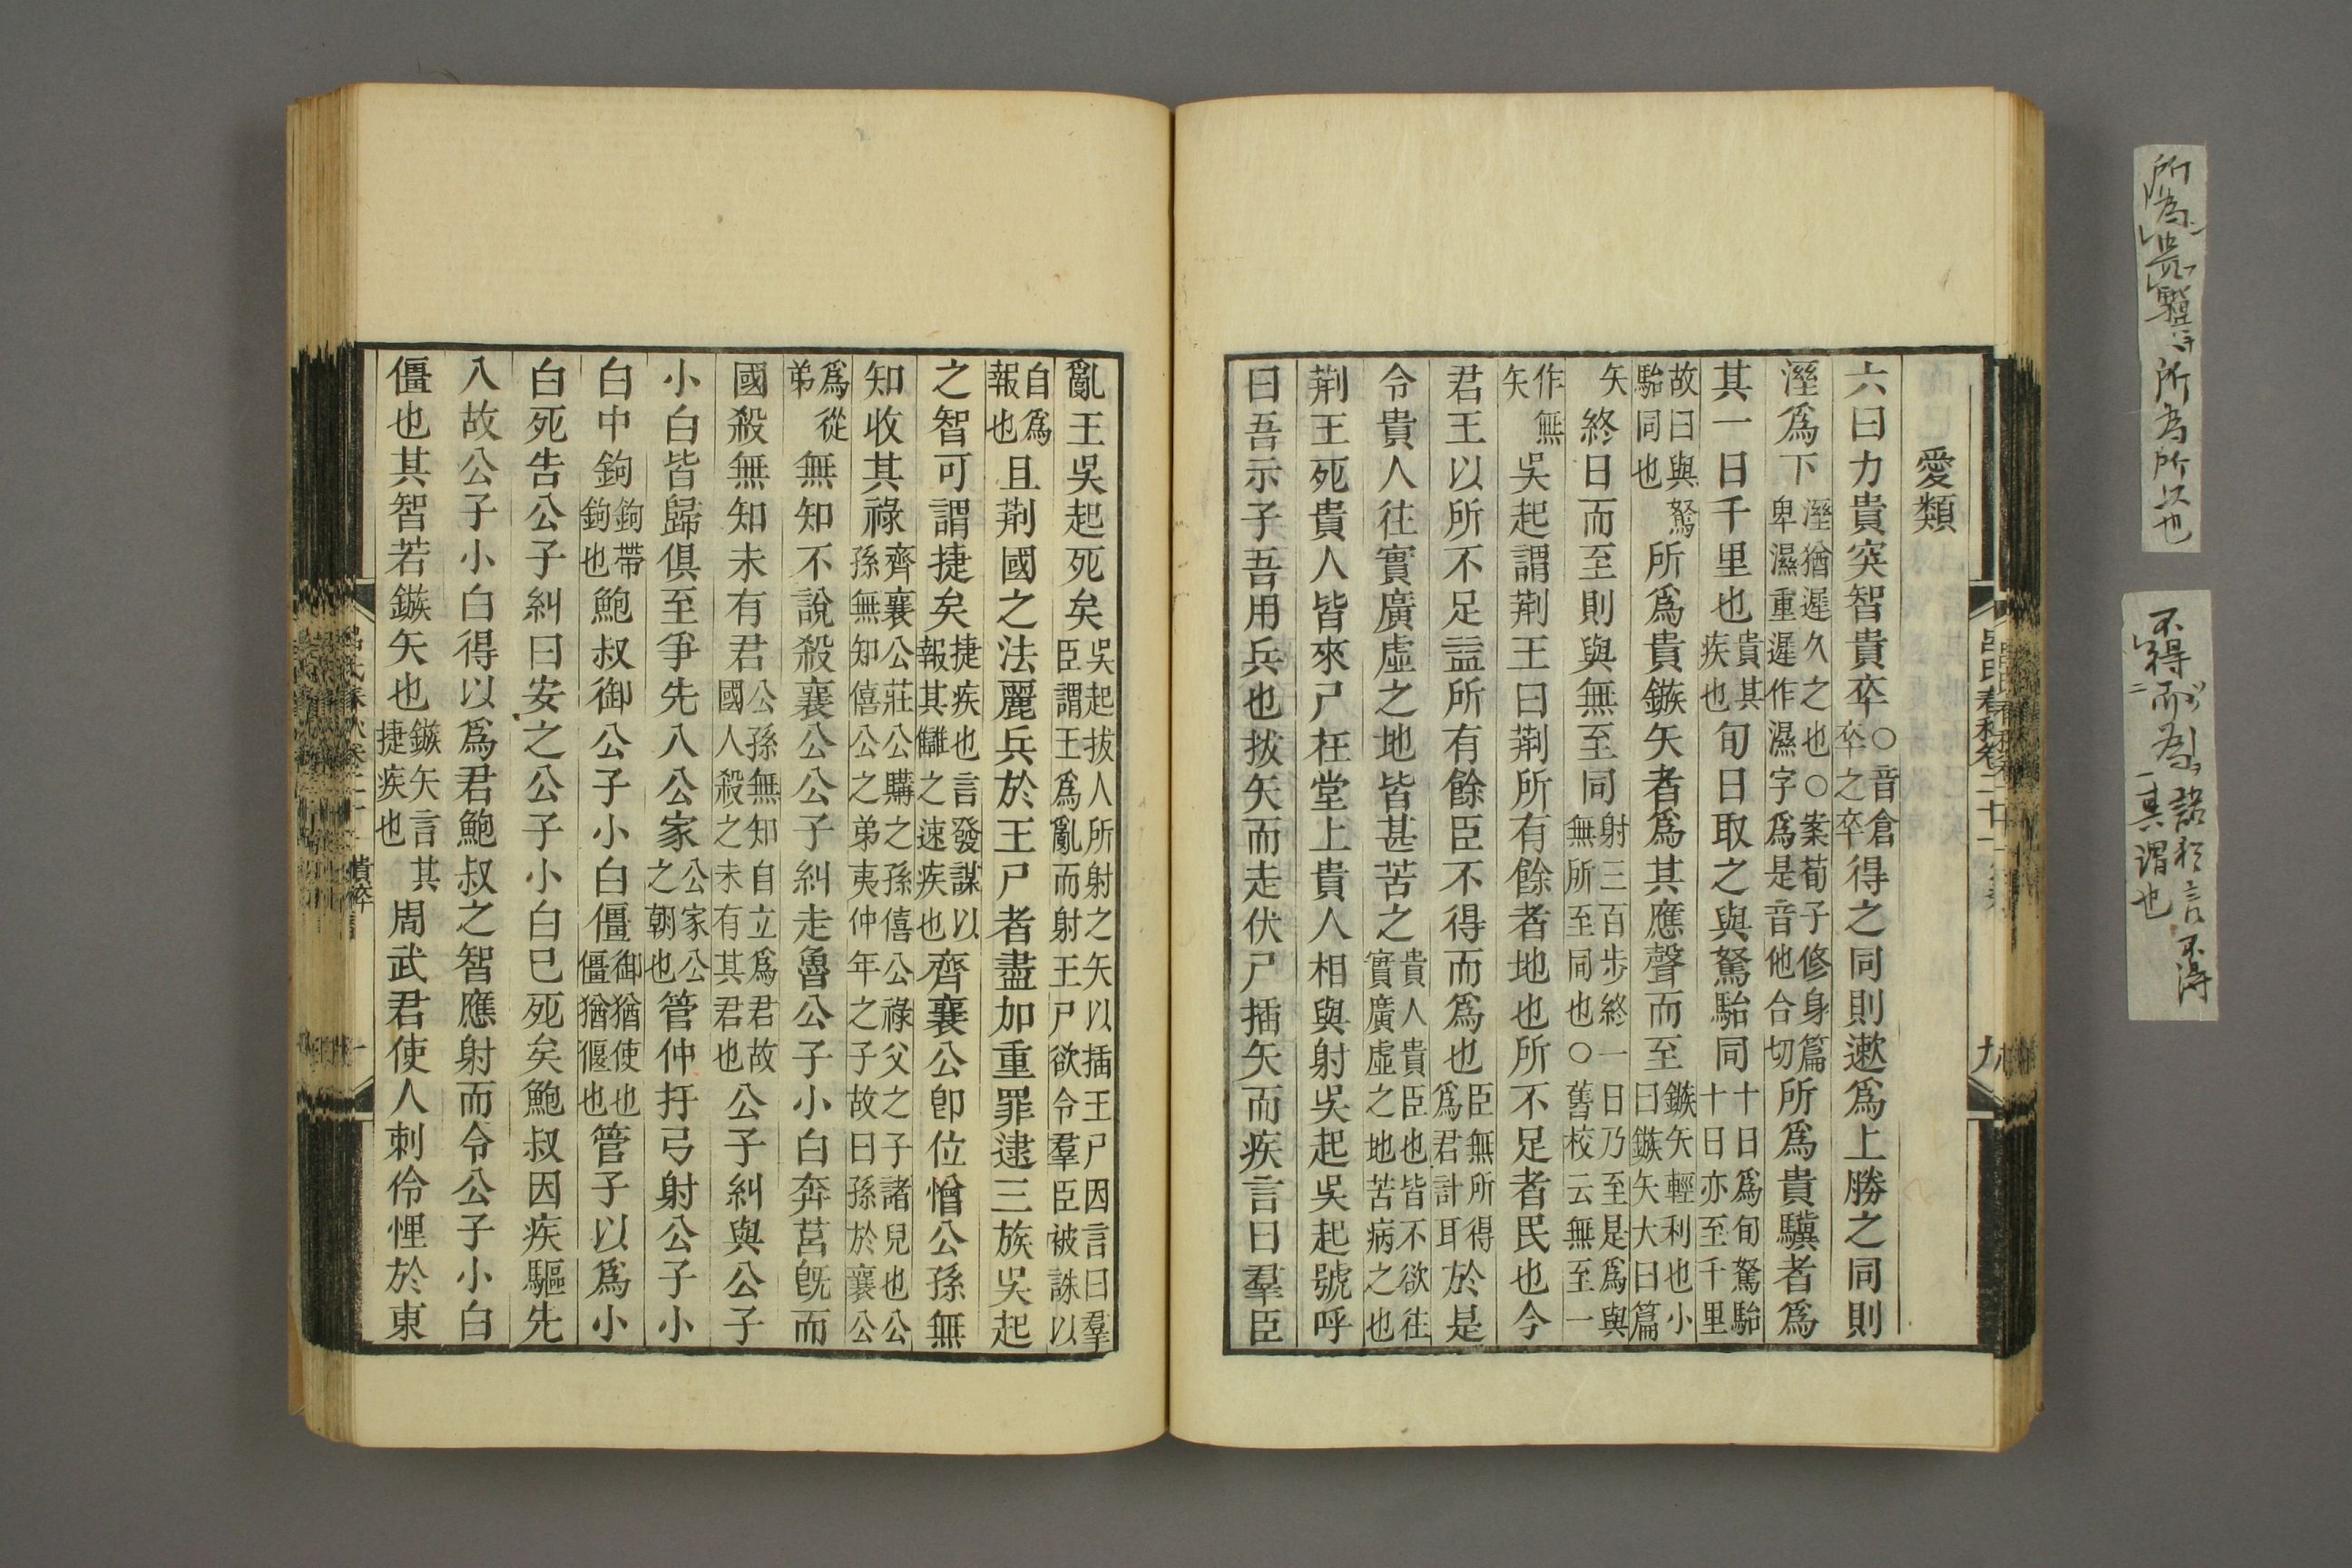 愛類
六曰力貴突智貴卒○音倉卒之卒得之同則遬爲上勝之同則
溼爲下溼猶遲久之也○案荀子修身篇卑濕重遲作濕字爲是音他合切所爲貴驥者爲
其一日千里也貴其疾也旬日取之與駑駘同十日爲旬駑駘十日亦至千里
故曰與駑駘同也所爲貴鏃矢者爲其應聲而至鏃矢輕利也小曰鏃矢大曰篇
矢終日而至則與無至同射三百步終一日乃至是爲與無所至同也○舊校云無至一
作無矢吳起謂荆王曰荆所有餘者地也所不足者民也今
君王以所不足益所有餘臣不得而爲也臣無所得爲君計耳於是
令貴人往實廣虛之地皆甚苦之貴人貴臣也皆不欲往實廣虛之地苦病之也
荆王死貴人皆來尸在堂上貴人相與射吳起吳起號呼
曰吾示子吾用兵也拔矢而走伏尸插矢而疾言曰羣臣
亂王吳起死矣吳起拔人所射之矢以插王尸因言曰羣臣謂王爲亂而射王尸欲令羣臣被誅以
自爲報也且荆國之法麗兵於王尸者盡加重罪逮三族吳起
之智可謂捷矣捷疾也言發謀以報其讎之速疾也齊襄公卽位憎公孫無
知收其祿齊襄公莊公購之孫僖公祿父之子諸兒也公孫無知僖公之弟夷仲年之子故曰孫於襄公
爲從弟無知不說殺襄公公子糾走魯公子小白奔莒旣而
國殺無知未有君公孫無知自立爲君故國人殺之未有其君也公子糾與公子
小白皆歸俱至爭先入公家公家公之朝也管仲扞弓射公子小
白中鉤鉤帶鉤也鮑叔御公子小白僵御猶使也僵猶偃也管子以爲小
白死告公子糾曰安之公子小白已死矣鮑叔因疾驅先
入故公子小白得以爲君鮑叔之智應射而令公子小白
僵也其智若鏃矢也鏃矢言其捷疾也周武君使人刺伶悝於東
呂氏春秋卷二十一
九
所為貴驥 所為所以也
不得而為 諸於言不得
其謂也